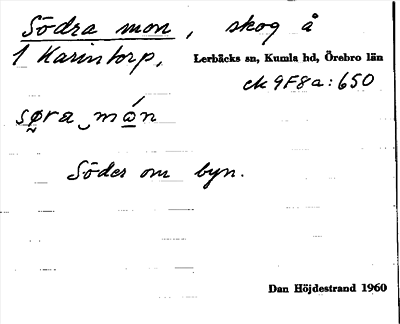 Södra mon, skog å
1 Karintorp,
Lerbäcks sn, Kumla hd, Örebro län
ek 9F8a:650
sø̰ra‿mó̲n
Söder om byn.
Dan Höjdestrand 1960